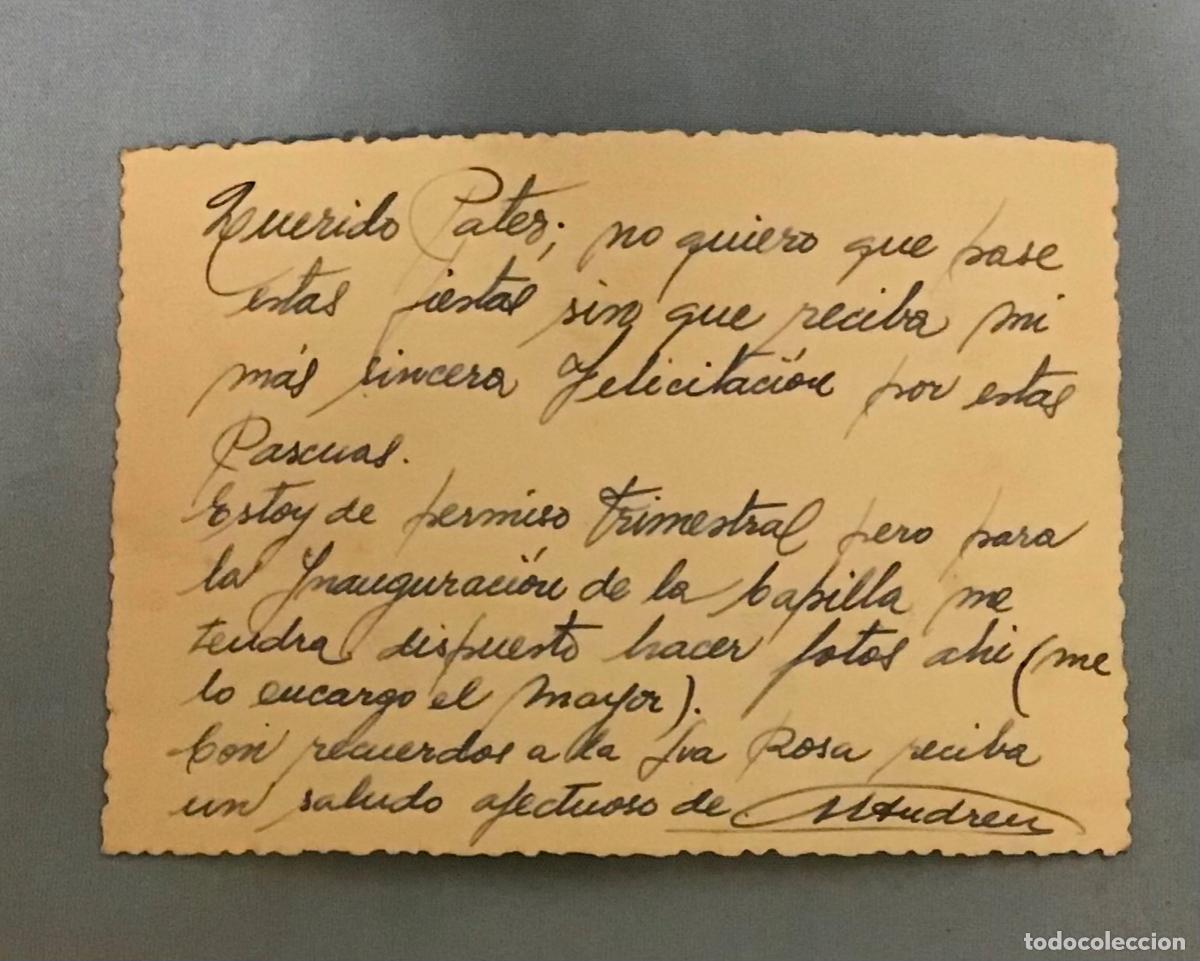 Querido Pater; no quiero que pase
estas fiestas sin que reciba mi
más sincera Felicitación por estas
Pascuas.
Estoy de permiso trimestral pero para
la Inauguración de la Capilla me
tendra dispuesto hacer fotos ahi (me
lo encargo el Mayor).
Con recuerdos a la Sra Rosa reciba
un saludo afectuoso de MAndreu
todocoleccion